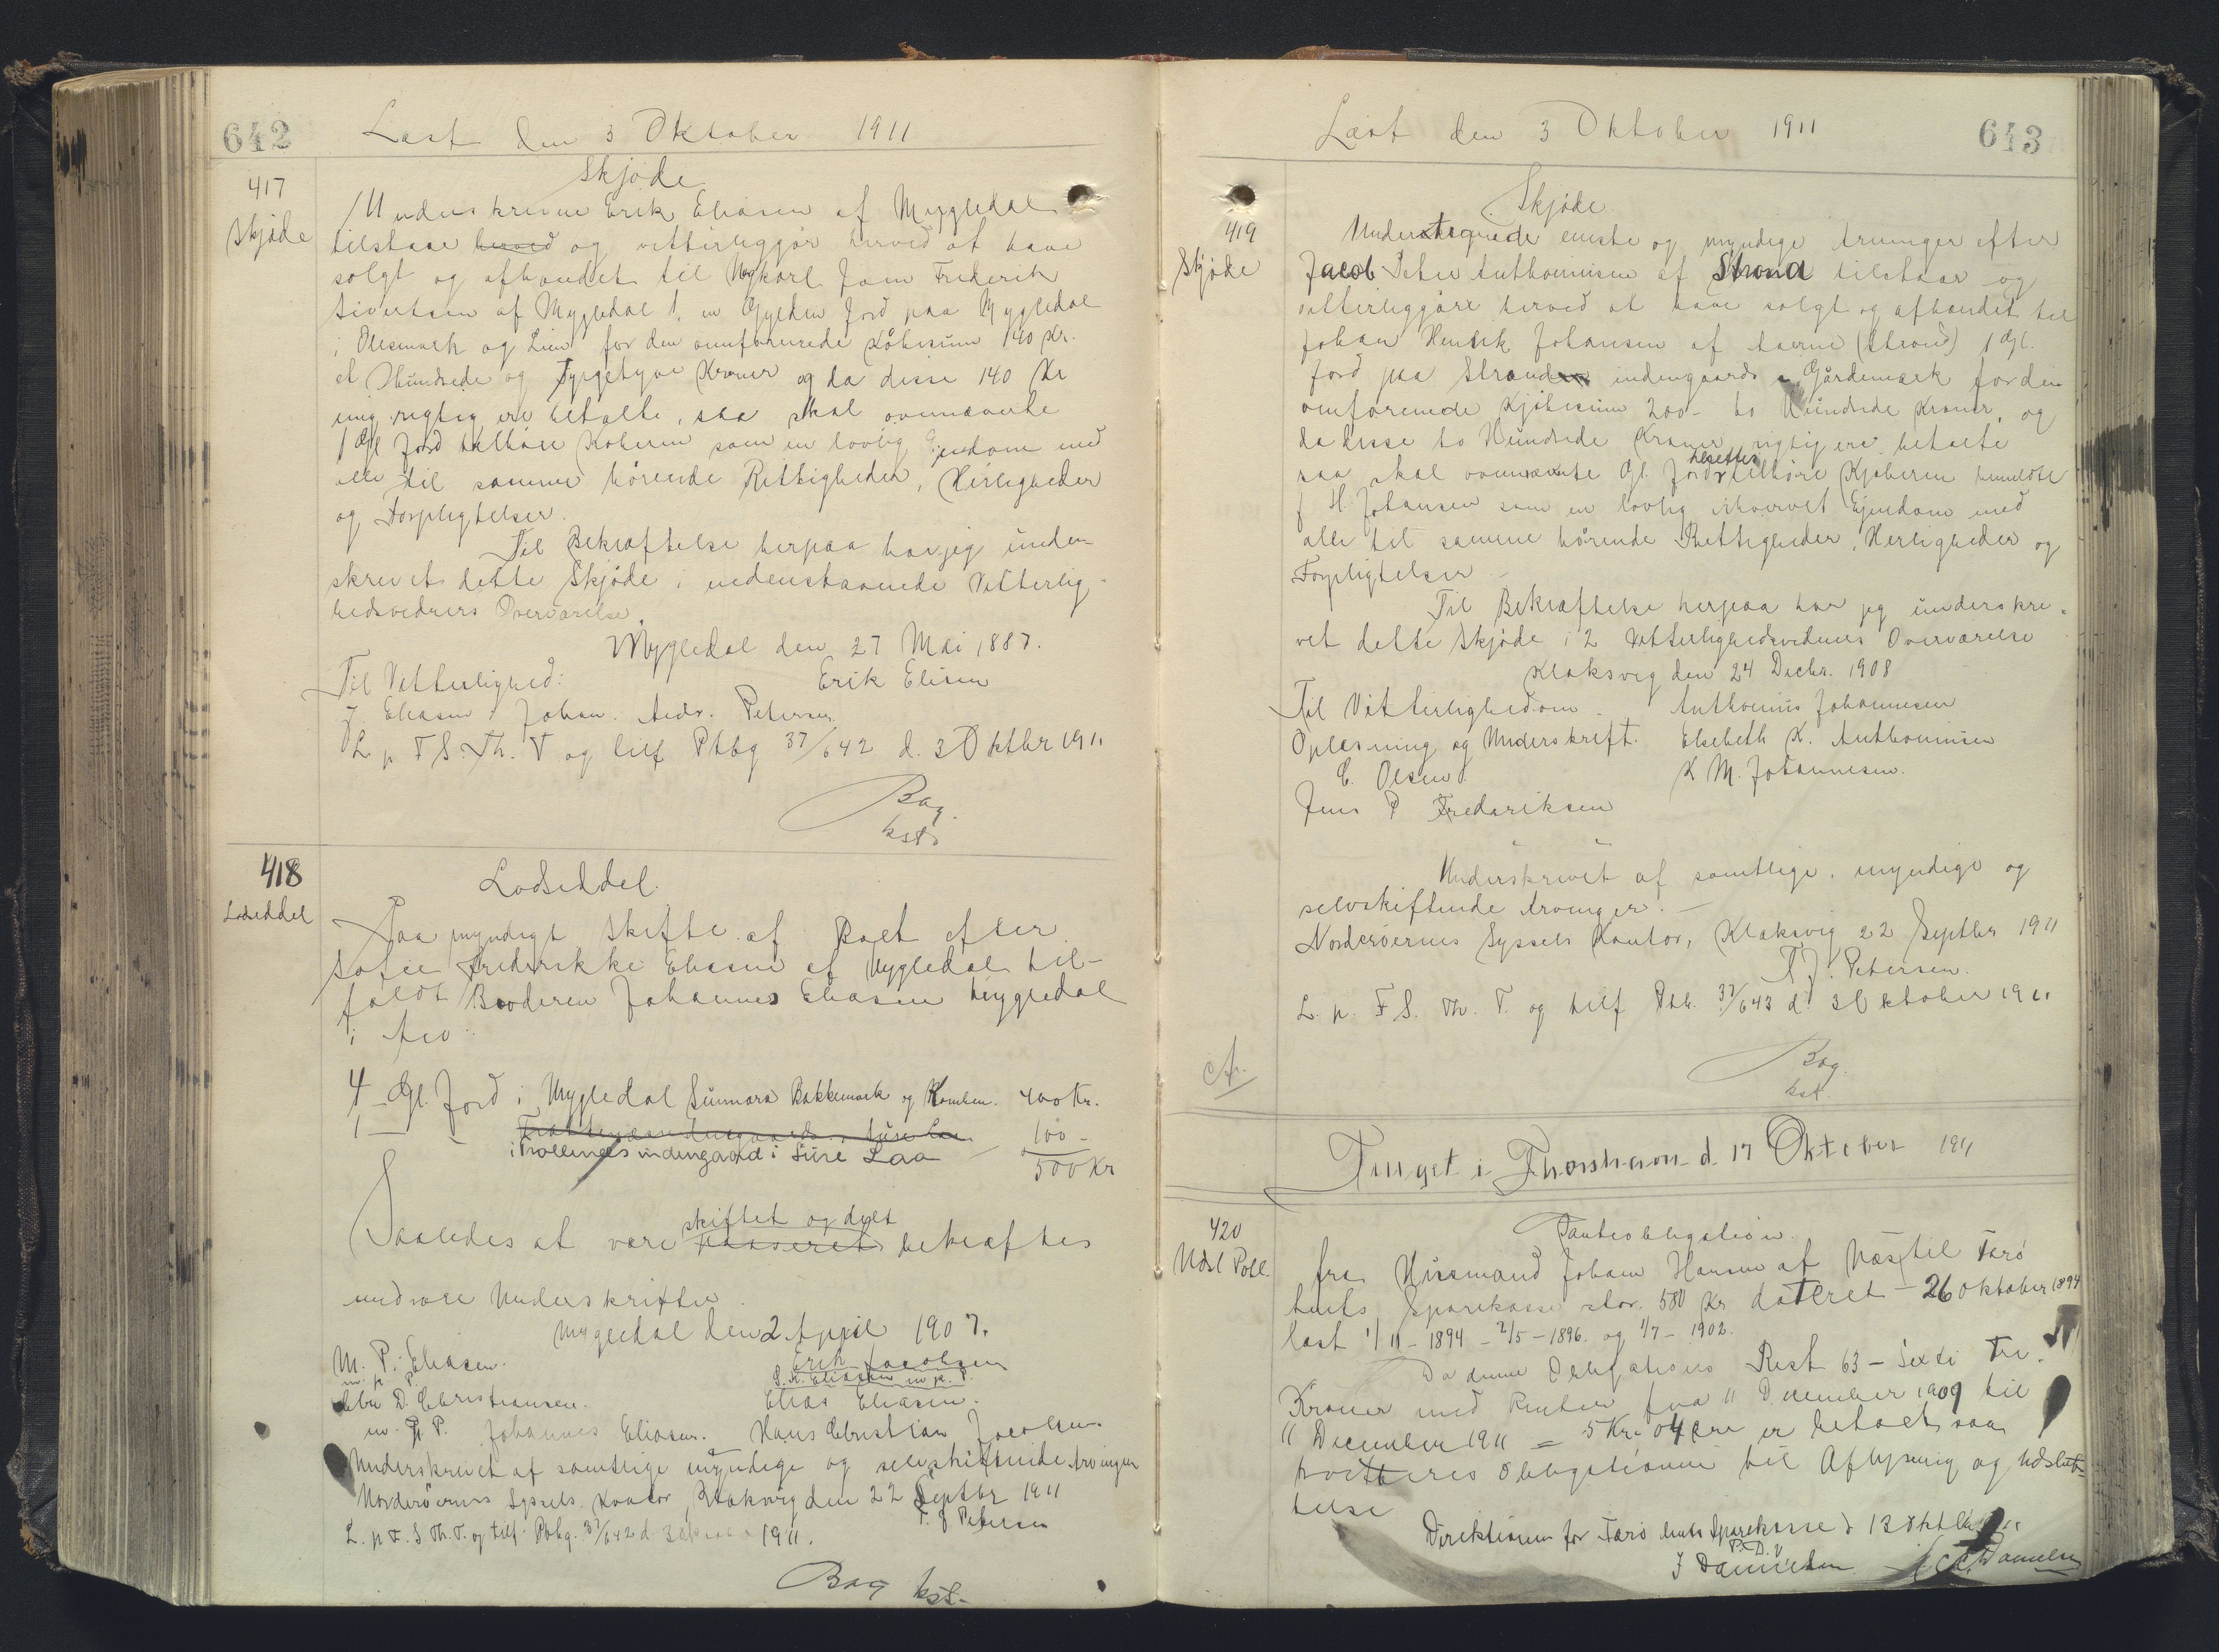 642
Læst den 3 Oktober 1911
417
Skjøde
Skjøde
Underskrevne Erik Eliasen af Mygledal
tilstaae herved og vitterliggjør herved at have
solgt og afhændet til Ungkarl Joen Frederik
Sivertsen af Mygledal 1, en Gylden Jord paa Mygledal
i og Lien for den omforenede Köbesum 140 Kr.
et Hundrede og Fyrgetyve Kroner og da disse 140 Kr
mig rigtig ere betalte, saa skal ovennævnte
1 Gl Jord tilhøre Køberen som en lovlig Ejendom med
alle til samme hörende Rettigheder, Herligheder
og Forpligtelser.
Til Bekræftelse herpaa har jeg under-
skrevet dette Skjøde i nedenstaaende Vitterlig-
hedsvidners Overværelse.
Mygledal den 27 Mai 1887.
Til Vitterlighed: Erik Elisen
J. Eliasen Johan. Andr. Petersen
L p F S. Th. T og tilf Ptbg 37/642 d. 3 Oktbr 1911
Bag.
kst.
418
Lodseddel
Lodseddel.
Paa myndigt Skifte af Boet efter
Sofie Frederikke Eliasen af Mygledal til-
faldt Broderen Johannes Eliasen Mygledal
i Arv:
4 Gl. Jord i Mygledal Sunnara Bakkemark og Kamben. 400 Kr.
1 — 100 -
i Trollenæs indengaard i Sure Laa — 500 Kr
skiftet og delt
Saaledes at være passeret bekræftes
med vore Underskrifter.
Mygledal den 2 April 1907.
M. P. Eliasen. Erik Jacobsen
m. p. P. S. K. Eliasen m. p. P.
Ebba D. Christiansen. Elias Eliasen.
m. p. P. Johannes Eliasen. Hans Christian Jacobsen
Underskrevet af samtlige myndige og selvskiftende Arvinger
Norderöernes Syssels Kontor, Klaksvig den 22 Septbr 1911
T. J Petersen
L. p F. S Th. T. og tilf. Ptbg. 37/642 d. 3 Oktober 1911.
Bag kst.
Læst den 3 Oktober 1911
643
419
Skjøde
Skjøde.
Undertegnede eneste og myndige Arvinger efter
Jacob Peter Anthoniusen af Strond tilstaar og
vitterliggøre herved at have solgt og afhændet til
Johan Henrik Johansen af (Strond) 1 Gl.
Jord paa Stranden indengaards a Gårdemark for den
omforenede Kjöbesum 200 - to Hundrede Kroner, og
da disse to Hundrede Kroner rigtig ere betalte
saa skal ovennævnte Gl. Jord tilhøre Kjøberen bemeldte
J H. Johansen som en lovlig erhvervet Ejendom med
alle til samme hørende Rettigheder, Herligheder og
Forpligtelser —
Til Bekræftelse herpaa har jeg underskre-
vet dette Skjøde i 2 Vitterlighedsvidners Overværelse
Klaksvig den 24 Decbr. 1908
Til Vitterlighed om Anthonius Johannesen
Oplæsning og Underskrift. Elsebeth K. Anthoniusen
C. Olsen K M. Johannesen.
Jens P Fredariksen
Underskrevet af samtlige, myndige og
selvskiftende Arvinger. —
Norderöernes Syssels Kontor, Klaksvig 22 Septbr 1911
T. J. Petersen.
L. p. F S. Th. T. og tilf Ptb. 37/643 d. 3 Oktober 1911
Bag.
kst.
Tinget i Thorshavn d. 17 Oktober 1911
420
Udsl Pobl.
Panteobligation.
fra Husmand Johan Hansen af Næs til Færö
Amts Sparekasse stor. 580 Kr dateret - 26 Oktober 1894
læst 1/11 - 1894 - 2/5 - 1896. og 1/7 - 1902.
Da denne Obligations Rest 63 - Sexti Tre.
Kroner med Renter fra 11 December 1909 til
11 December 1911 = 5 Kr. 04 Øre er betalt saa
kvitteres Obligationen til Aflysning og Udslet-
telse
Direktionen for Færö Amts Sparekasse d 13 Oktbr 1911
P. D. V
J Danielsen